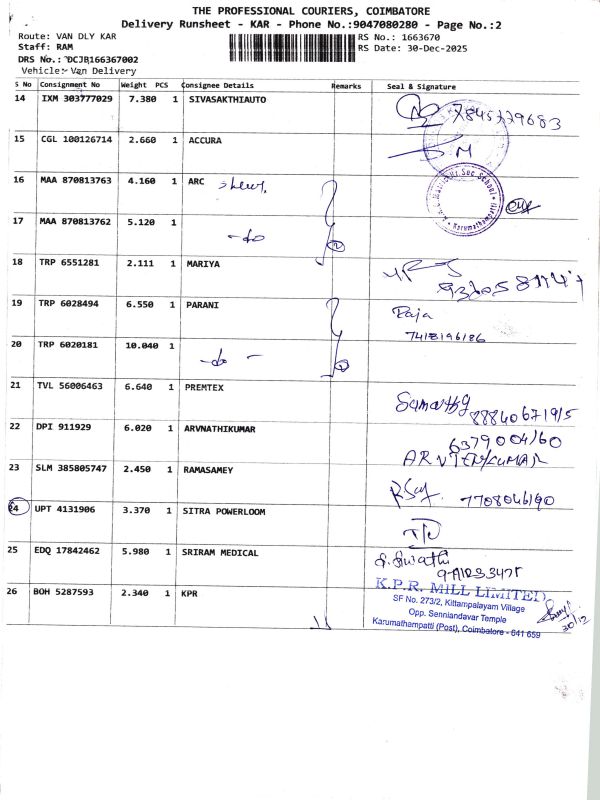 THE PROFESSIONAL COURIERS, COIMBATORE
Delivery Runsheet - KAR - Phone No.:9047080280 - Page No.:2
Route: VAN DLY KAR
RS No.: 1663670
Staff: RAM
RS Date: 30-Dec-2025
DRS No.: DCJB166367002
Vehicle:- Van Delivery
S No Consignment No Weight PCS Consignee Details Remarks Seal & Signature
14 IXM 303777029 7.380 1 SIVASAKTHIAUTO
15 CGL 100126714 2.660 1 ACCURA
16 MAA 870813763 4.160 1 ARC
17 MAA 870813762 5.120 1 -do
18 TRP 6551281 2.111 1 MARIYA
19 TRP 6028494 6.550 1 PARANI Raja
7418196186
20 TRP 6020181 10.040 1 -do-
21 TVL 56006463 6.640 1 PREMTEX
22 DPI 911929 6.020 1 ARVNATHIKUMAR
23 SLM 385805747 2.450 1 RAMASAMEY 7708046190
24 UPT 4131906 3.370 1 SITRA POWERLOOM
25 EDQ 17842462 5.980 1 SRIRAM MEDICAL S. Swathi
26 BOH 5287593 2.340 1 KPR
K.P.R. MILL LIMITED
SF No. 273/2, Kittampalayam Village
Opp. Senniandavar Temple
Karumathampatti (Post), Coimbatore - 641 659
30/12